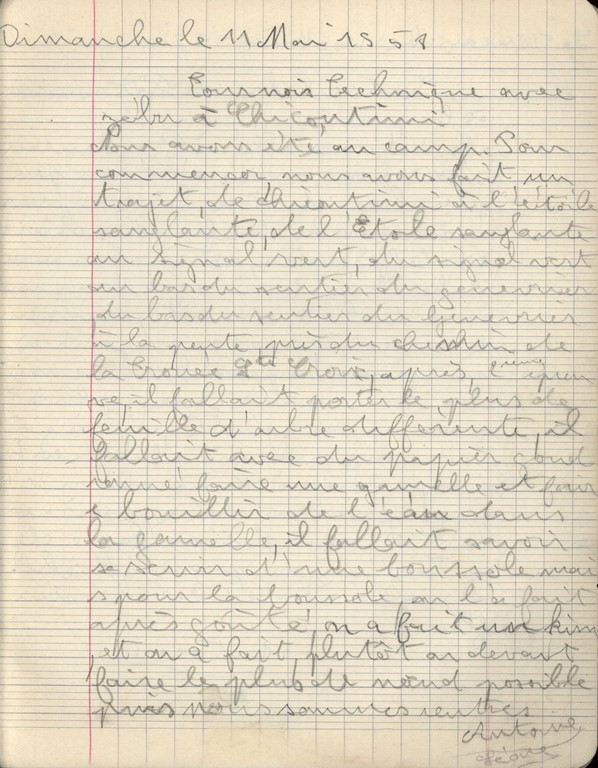 Dimanche le 11 Mai 1958
Tournois technique avec
zébu à Chicoutimi
Nous avons été au camp. Pour
commencer nous avons fait un
trajet, de chicoutimi à l'étoile
sanglante, de l'Etoile sanglante
au signal vert, du signal vert
au bas du sentier du genevrier
du bas du sentier du Genevrier
à la pente, près du chemin de
la Croix, après, 2eme épreu
ve, il fallait porter le plus de
feuille d'arbre differente, il
fallait avec du papier goud
ronné faire une gamelle et fair
e bouillir de l'eau dans
la gamelle, il fallait savoir
se servir d'une boussole mai
s pour la boussole on l'a fait
après goûté, on a fait un kim
et on a fait, plutôt on devait
faire le plus de nœud possible
puis nous sommes rentres
Antoine